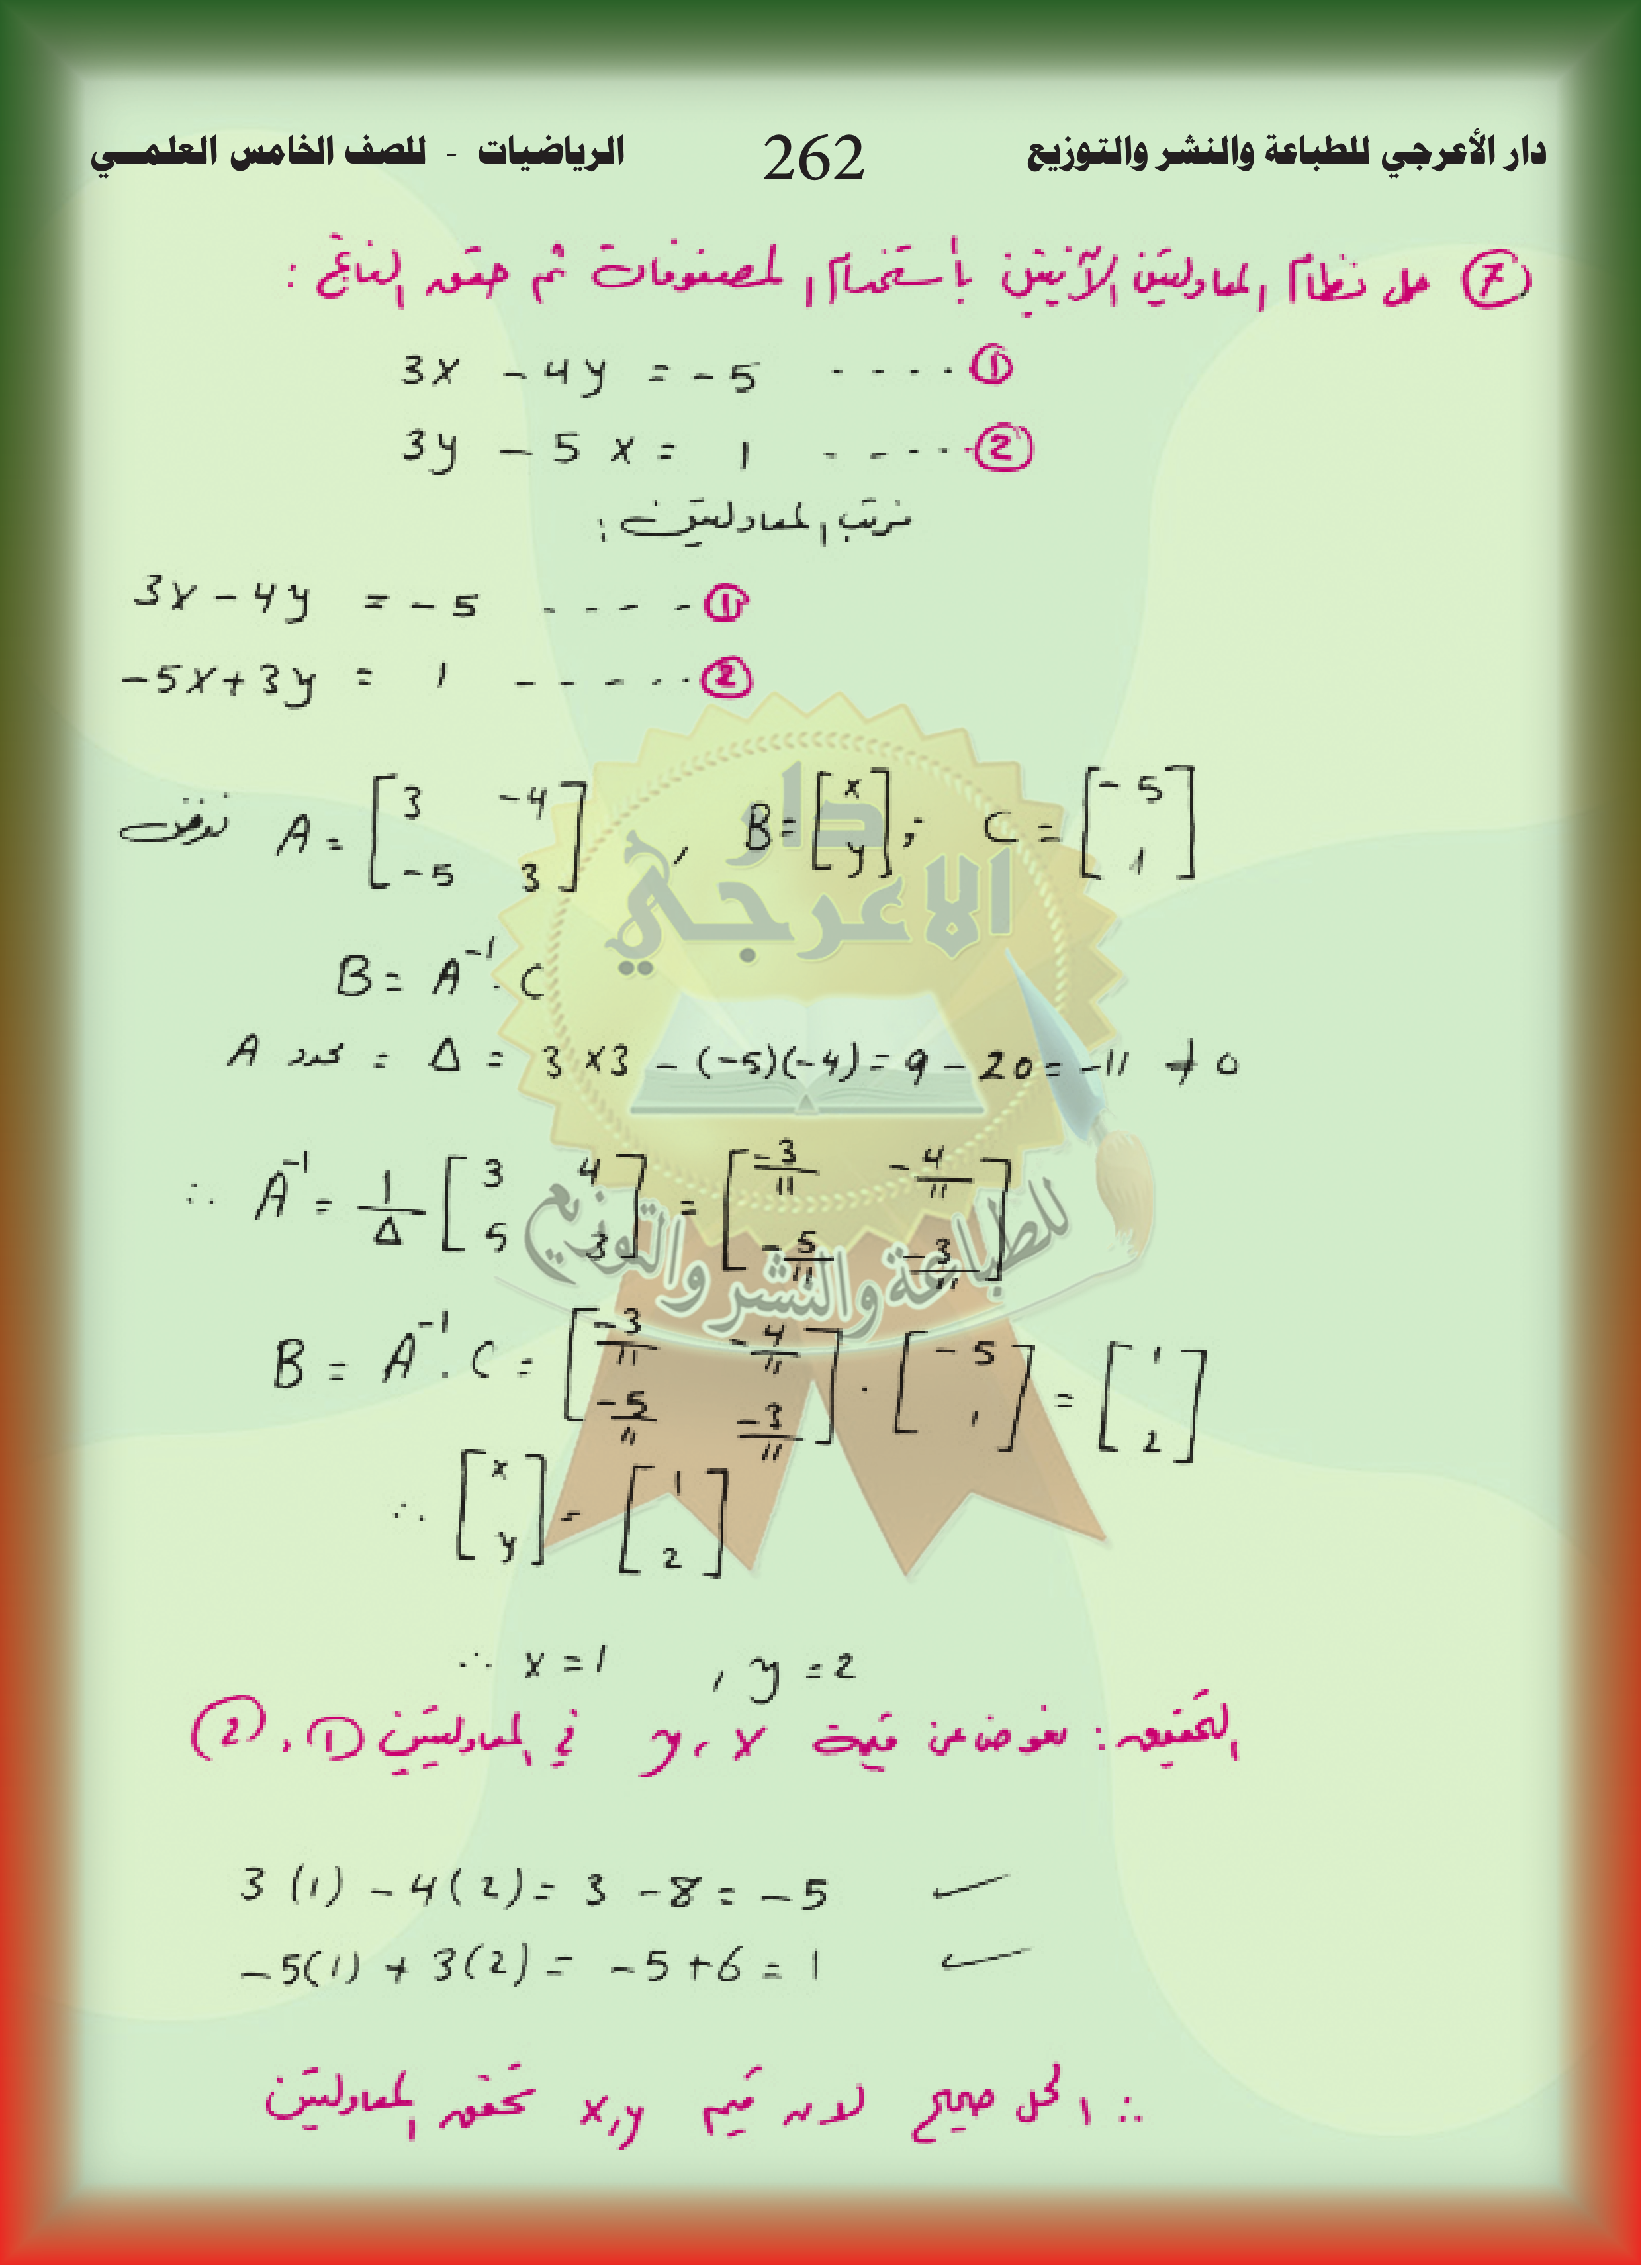 دار الأعرجي للطباعة والنشر والتوزيع 262 الرياضيات - للصف الخامس العلمـــي
⑦ حل نظام المعادلتين الآنيتين بأستخدام المصفوفات ثم حقق الناتج :
3x - 4y = -5 ---- ①
3y - 5x = 1 ---- ②
نرتب المعادلتين :
3x - 4y = -5 ---- ①
-5x + 3y = 1 ----- ②
نفرض A = [3 -4; -5 3] , B = [x; y] ; C = [-5; 1]
B = A⁻¹ . C
A محدد = Δ = 3 × 3 - (-5)(-4) = 9 - 20 = -11 ≠ 0
∴ A⁻¹ = 1/Δ [3 4; 5 3] = [-3/11 -4/11; -5/11 -3/11]
B = A⁻¹ . C = [-3/11 -4/11; -5/11 -3/11] . [-5; 1] = [1; 2]
∴ [x; y] = [1; 2]
∴ x = 1 , y = 2
التحقيق : نعوض عن قيمة x , y في المعادلتين ① , ②
3(1) - 4(2) = 3 - 8 = -5 ✓
-5(1) + 3(2) = -5 + 6 = 1 ✓
∴ الحل صحيح لان قيم x,y تحقق المعادلتين
دار
الاعرجي
للطباعة والنشر والتوزيع